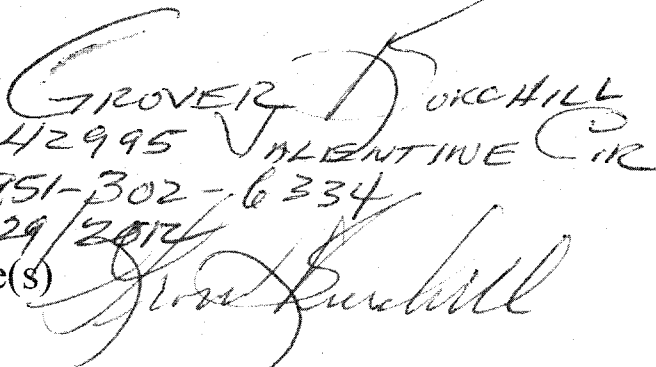 GROVER BURCHILL
42995 VALENTINE CIR
951-302-6334
29/2012
e(s) Grover Burchill